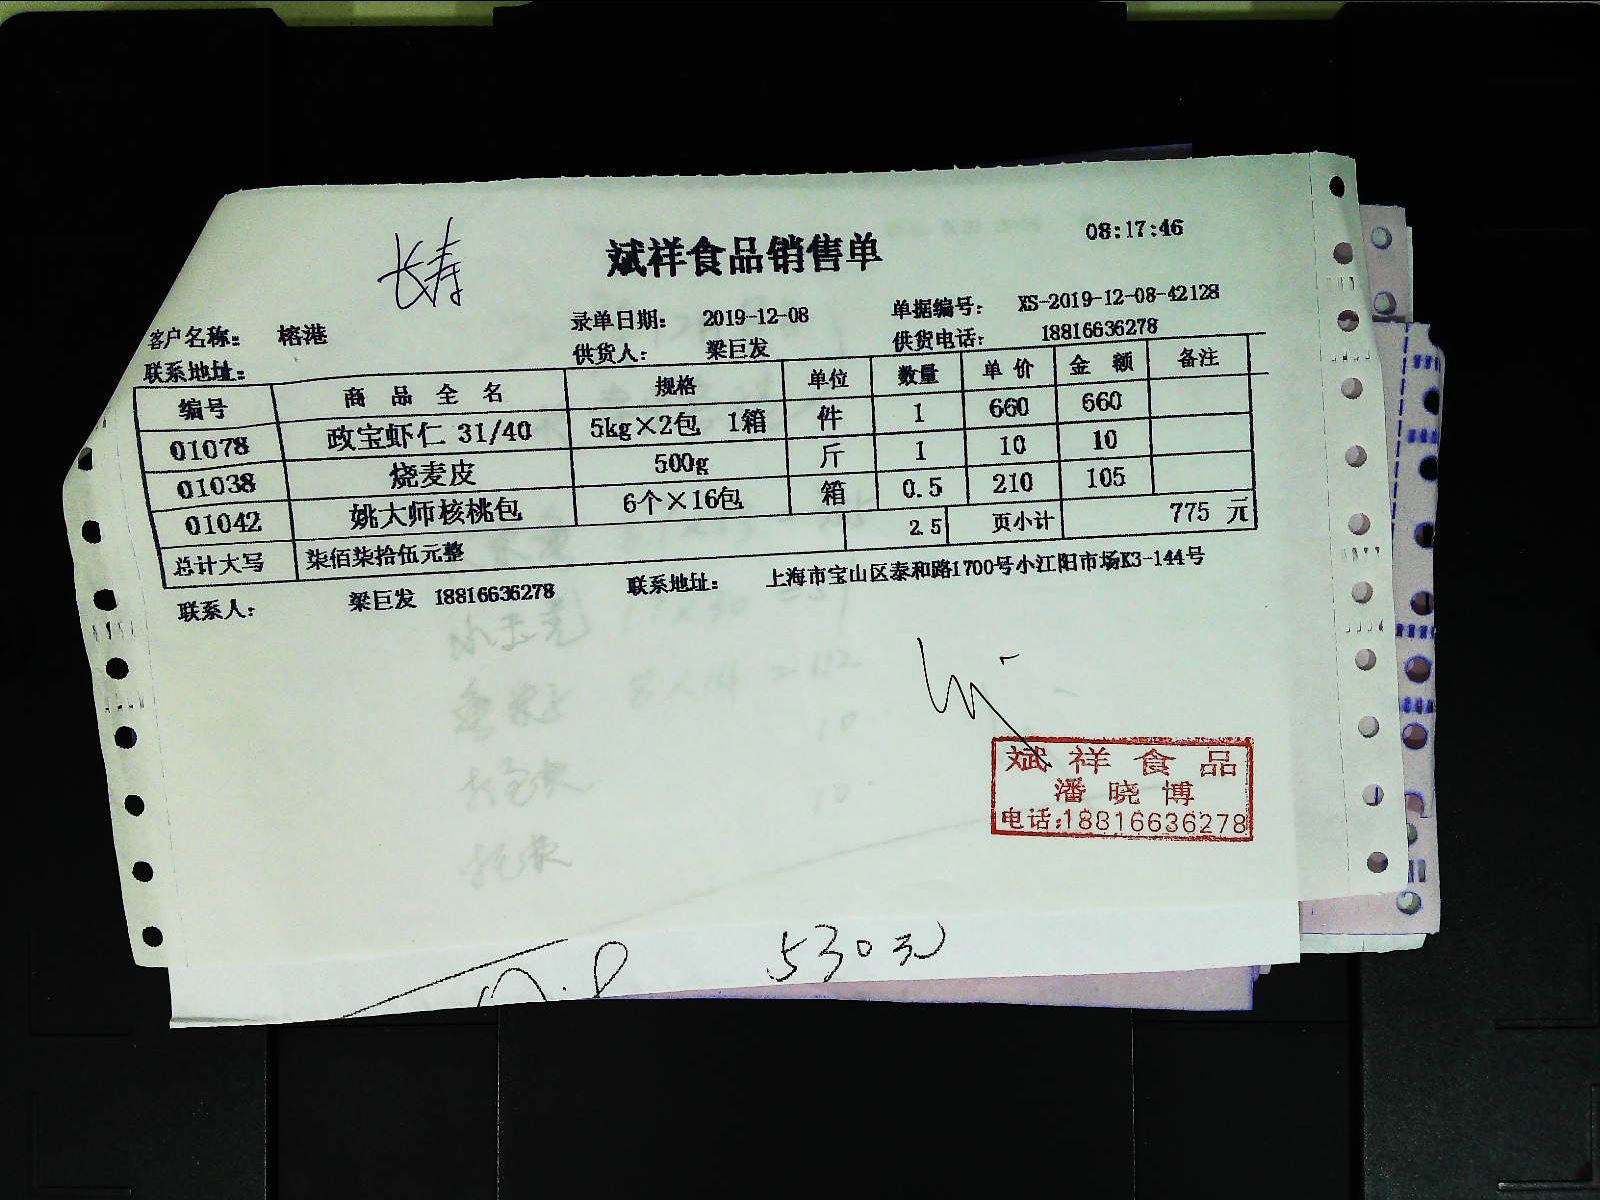 长寿
斌祥食品销售单
08:17:46
客户名称： 榕港 录单日期： 2019-12-08 单据编号： XS-2019-12-08-42128
联系地址： 供货人： 梁巨发 供货电话： 18816636278
编号 商品全名 规格 单位 数量 单价 金额 备注
01078 政宝虾仁 31/40 5kg×2包 1箱 件 1 660 660
01038 烧麦皮 500g 斤 1 10 10
01042 姚大师核桃包 6个×16包 箱 0.5 210 105
总计大写 柒佰柒拾伍元整 2.5 页小计 775 元
联系人： 梁巨发 18816636278 联系地址： 上海市宝山区泰和路1700号小江阳市场K3-144号
斌祥食品
潘晓博
电话:18816636278
530元